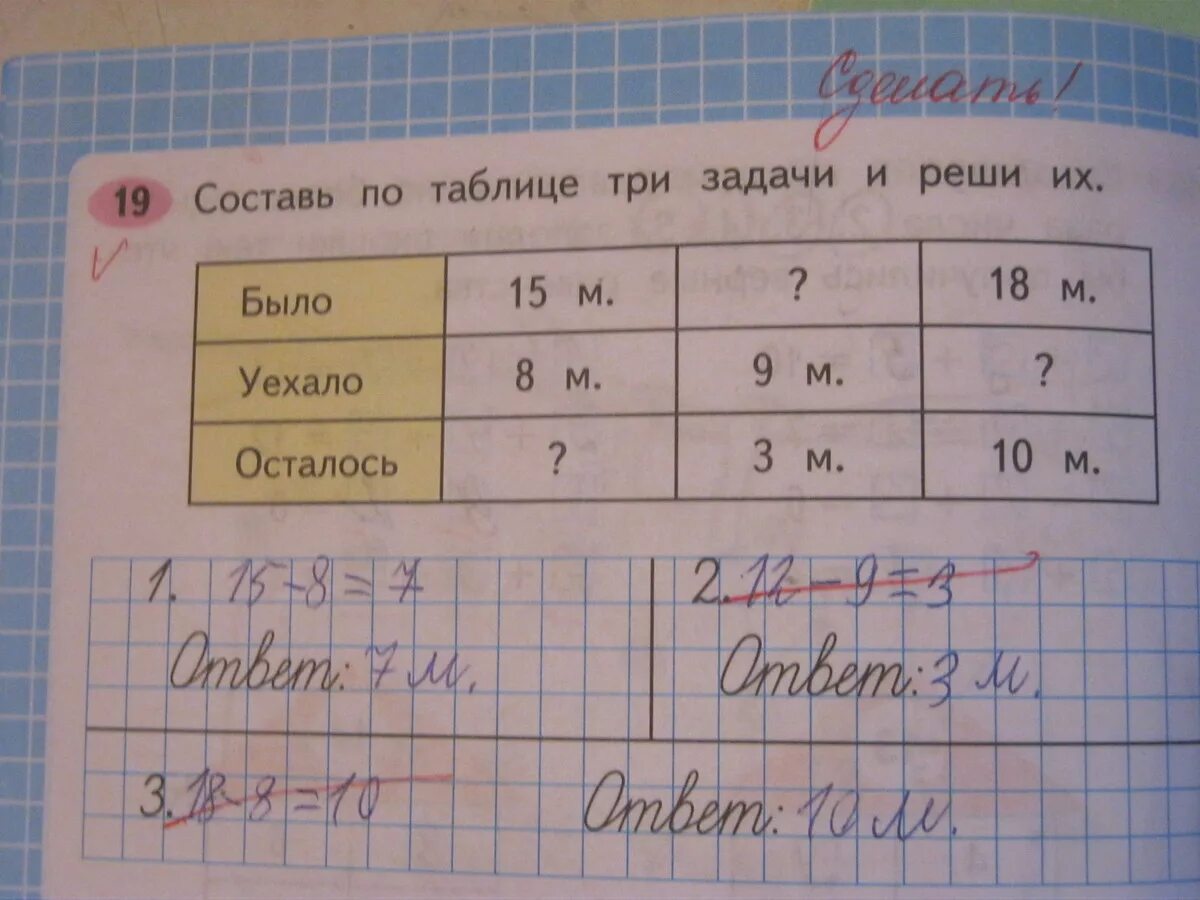 Сделать!
19 Составь по таблице три задачи и реши их.
Было 15 м. ? 18 м.
Уехало 8 м. 9 м. ?
Осталось ? 3 м. 10 м.
1. 15-8=7 2. 12-9=3
Ответ: 7 м. Ответ: 3 м.
3. 18-8=10 Ответ: 10 м.